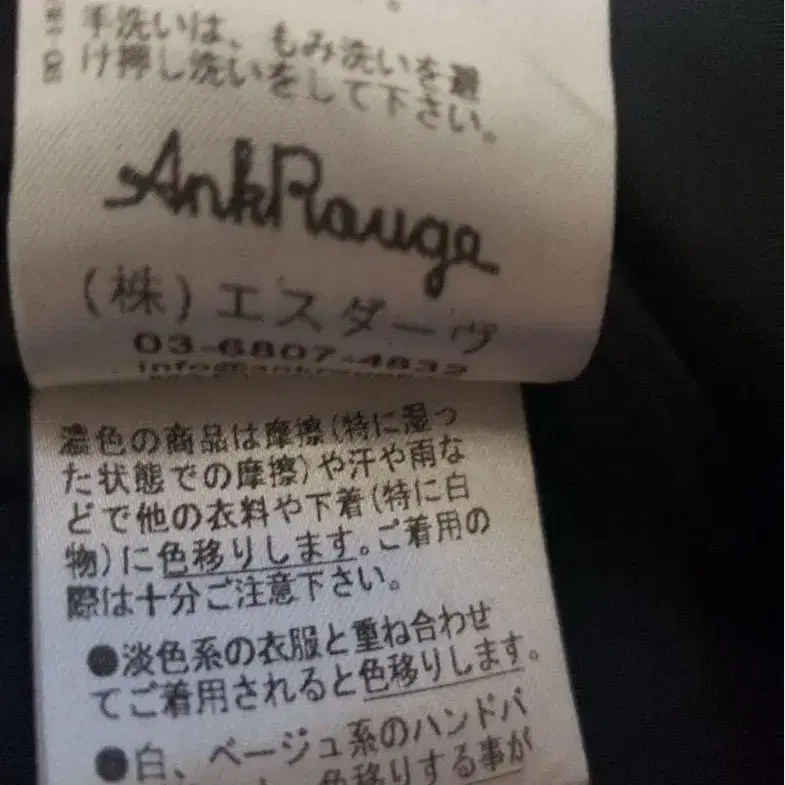 手洗いは、もみ洗いを避
け押し洗いをして下さい。
AnkRouge
(株)エスダーヴ
03-6807-4839
濃色の商品は摩擦(特に湿っ
た状態での摩擦)や汗や雨な
どで他の衣料や下着(特に白
物)に色移りします。ご着用の
際は十分ご注意下さい。
●淡色系の衣服と重ね合わせ
てご着用されると色移りします。
●白、ベージュ系のハンドバ
色移りする事が